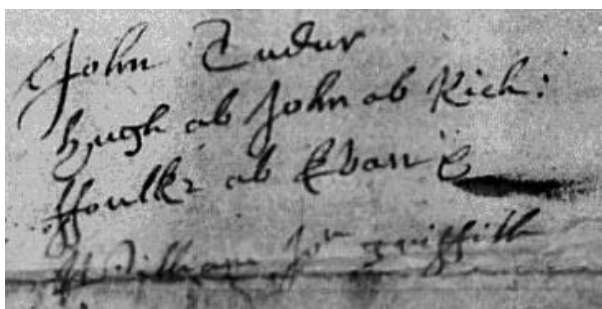 John Tudur
hugh ab John ab Rich:
ffoulke ab Evan
William Jon griffith